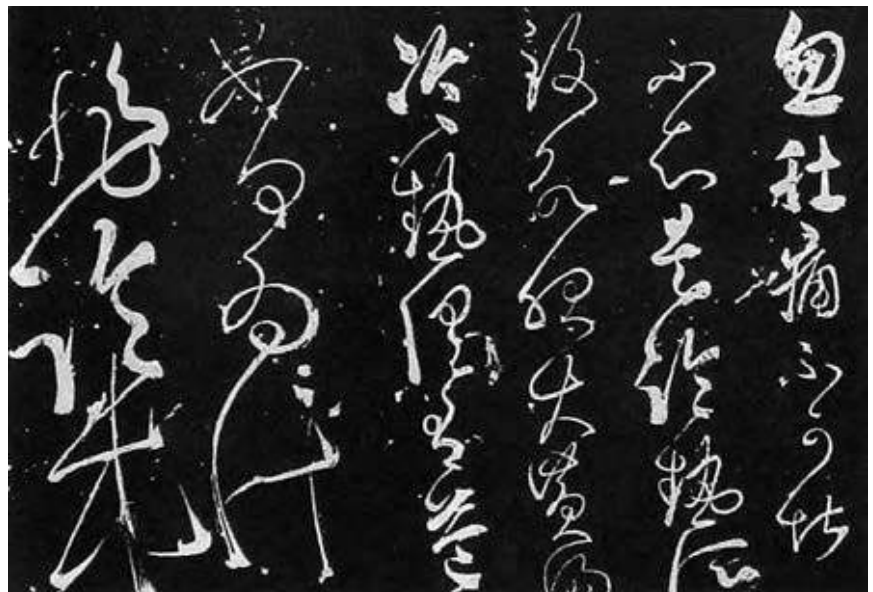 忽肚痛不可堪
不知是冷熱所
致欲服大黄湯
冷熱俱有益
如何為計
非冷哉